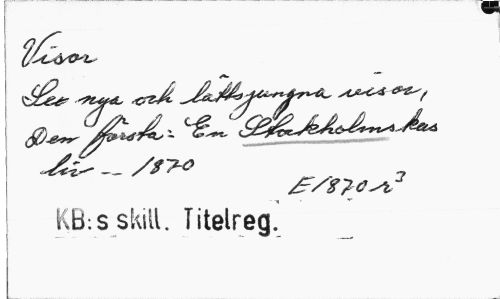 Visor
Sex nya och lättsjungna visor,
Den första: En Stockholmskas
liv -- 1870
E1870 r³
KB:s skill. Titelreg.